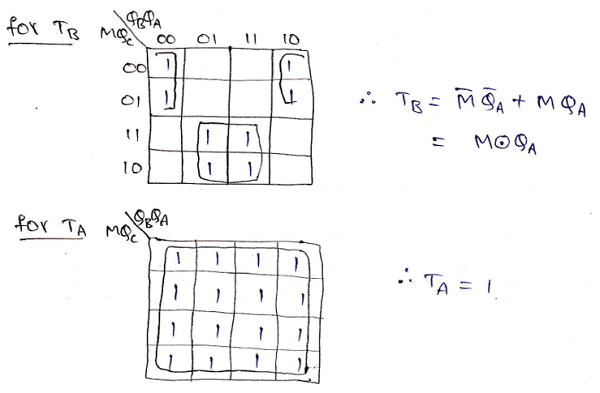 for T_B MQ_C Q_BQ_A
00 01 11 10
00 1 1
01 1 1
11 1 1
10 1 1
∴ T_B = M̅ Q̅_A + M Q_A
= M⊙Q_A
for T_A MQ_C Q_BQ_A
1 1 1 1
1 1 1 1
1 1 1 1
1 1 1 1
∴ T_A = 1